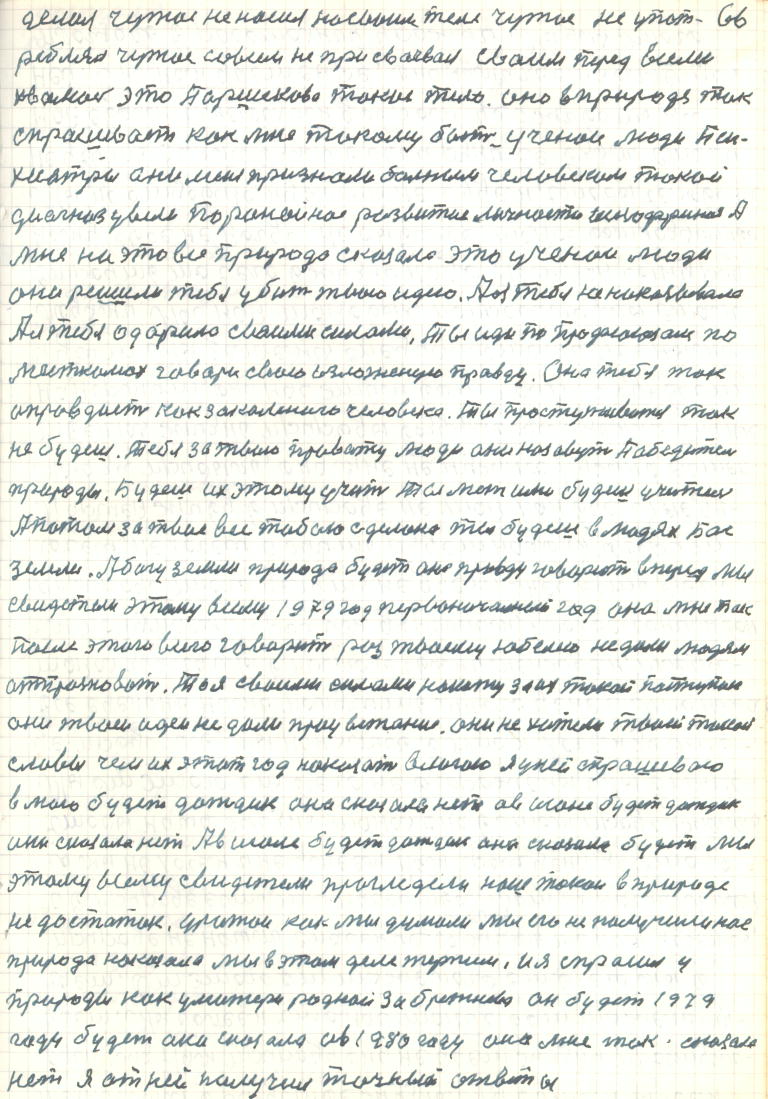 делал чужое не носил на своим теле чужое не упот- Св
реблял чужое совсем не присвачвал Своим перед всеми
хвамое это Паршиково токое тело. оно в природе так
спрашивает как мне токому быть ученои люди Пси-
хиатри они меня признали болным человеком токой
диагноз увели Поронойное развитие личности шизофриния А
мне на это все природа сказала это ученои люди
они решили тебя убит твою идею. А я тебя не наказывала
А я тебя одарила своими силами, Ты иди по Профсоюзам по
месткомах говори свою изложеную правду. Она тебя так
оправдает как закаленого человека. Ты простуживатся так
не будеш. Тебя за твою правоту люди они назовут Победител
природы. Будеш их этому учит Ты меж ими будеш учител
А потом за твое все тобою сделоно ты будеш в людях Бог
земли. А богу земли природа будет она правду говорит вперед мы
свидетели этому всему 1979 год первоначалный год она мне так
После этого всего говорит раз твоему юбелию не дали людям
отпразноват. То я своими силами накажу за их такой поступок
они твоеи идеи не дали процветание. они не хотели твоей такой
славы чем их этот год наказат влагою я у ней спрашеваю
в маю будет дождик она сказала нет ов июне будет дождик
она сказала нет А в июле будет дождик она сказала будет мы
этому всему свидетели прогледели наш токои в природе
недостаток. урожои как мы думали мы его не получили нас
природа наказала мы в этом деле терпим. и я спросил у
природы как у матери родной за Брежнева он будет 1979
году будет она сказала ов 1980 году она мне так сказала
нет я от ней получил точный ответы